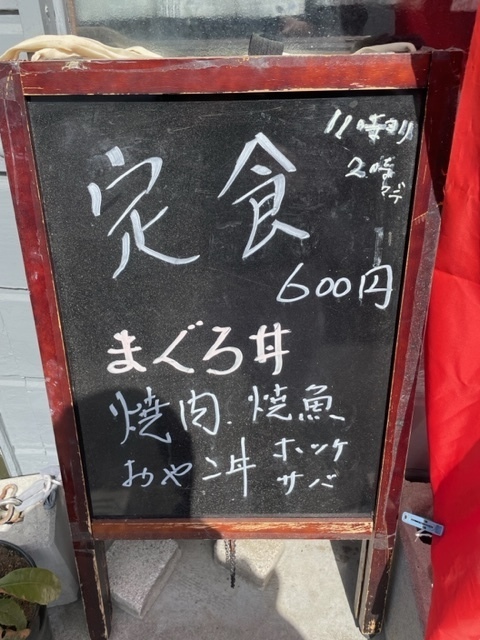 11時ヨリ
2時マデ
定食
600円
まぐろ丼
焼肉.焼魚
おや二丼 ホッケ
サバ